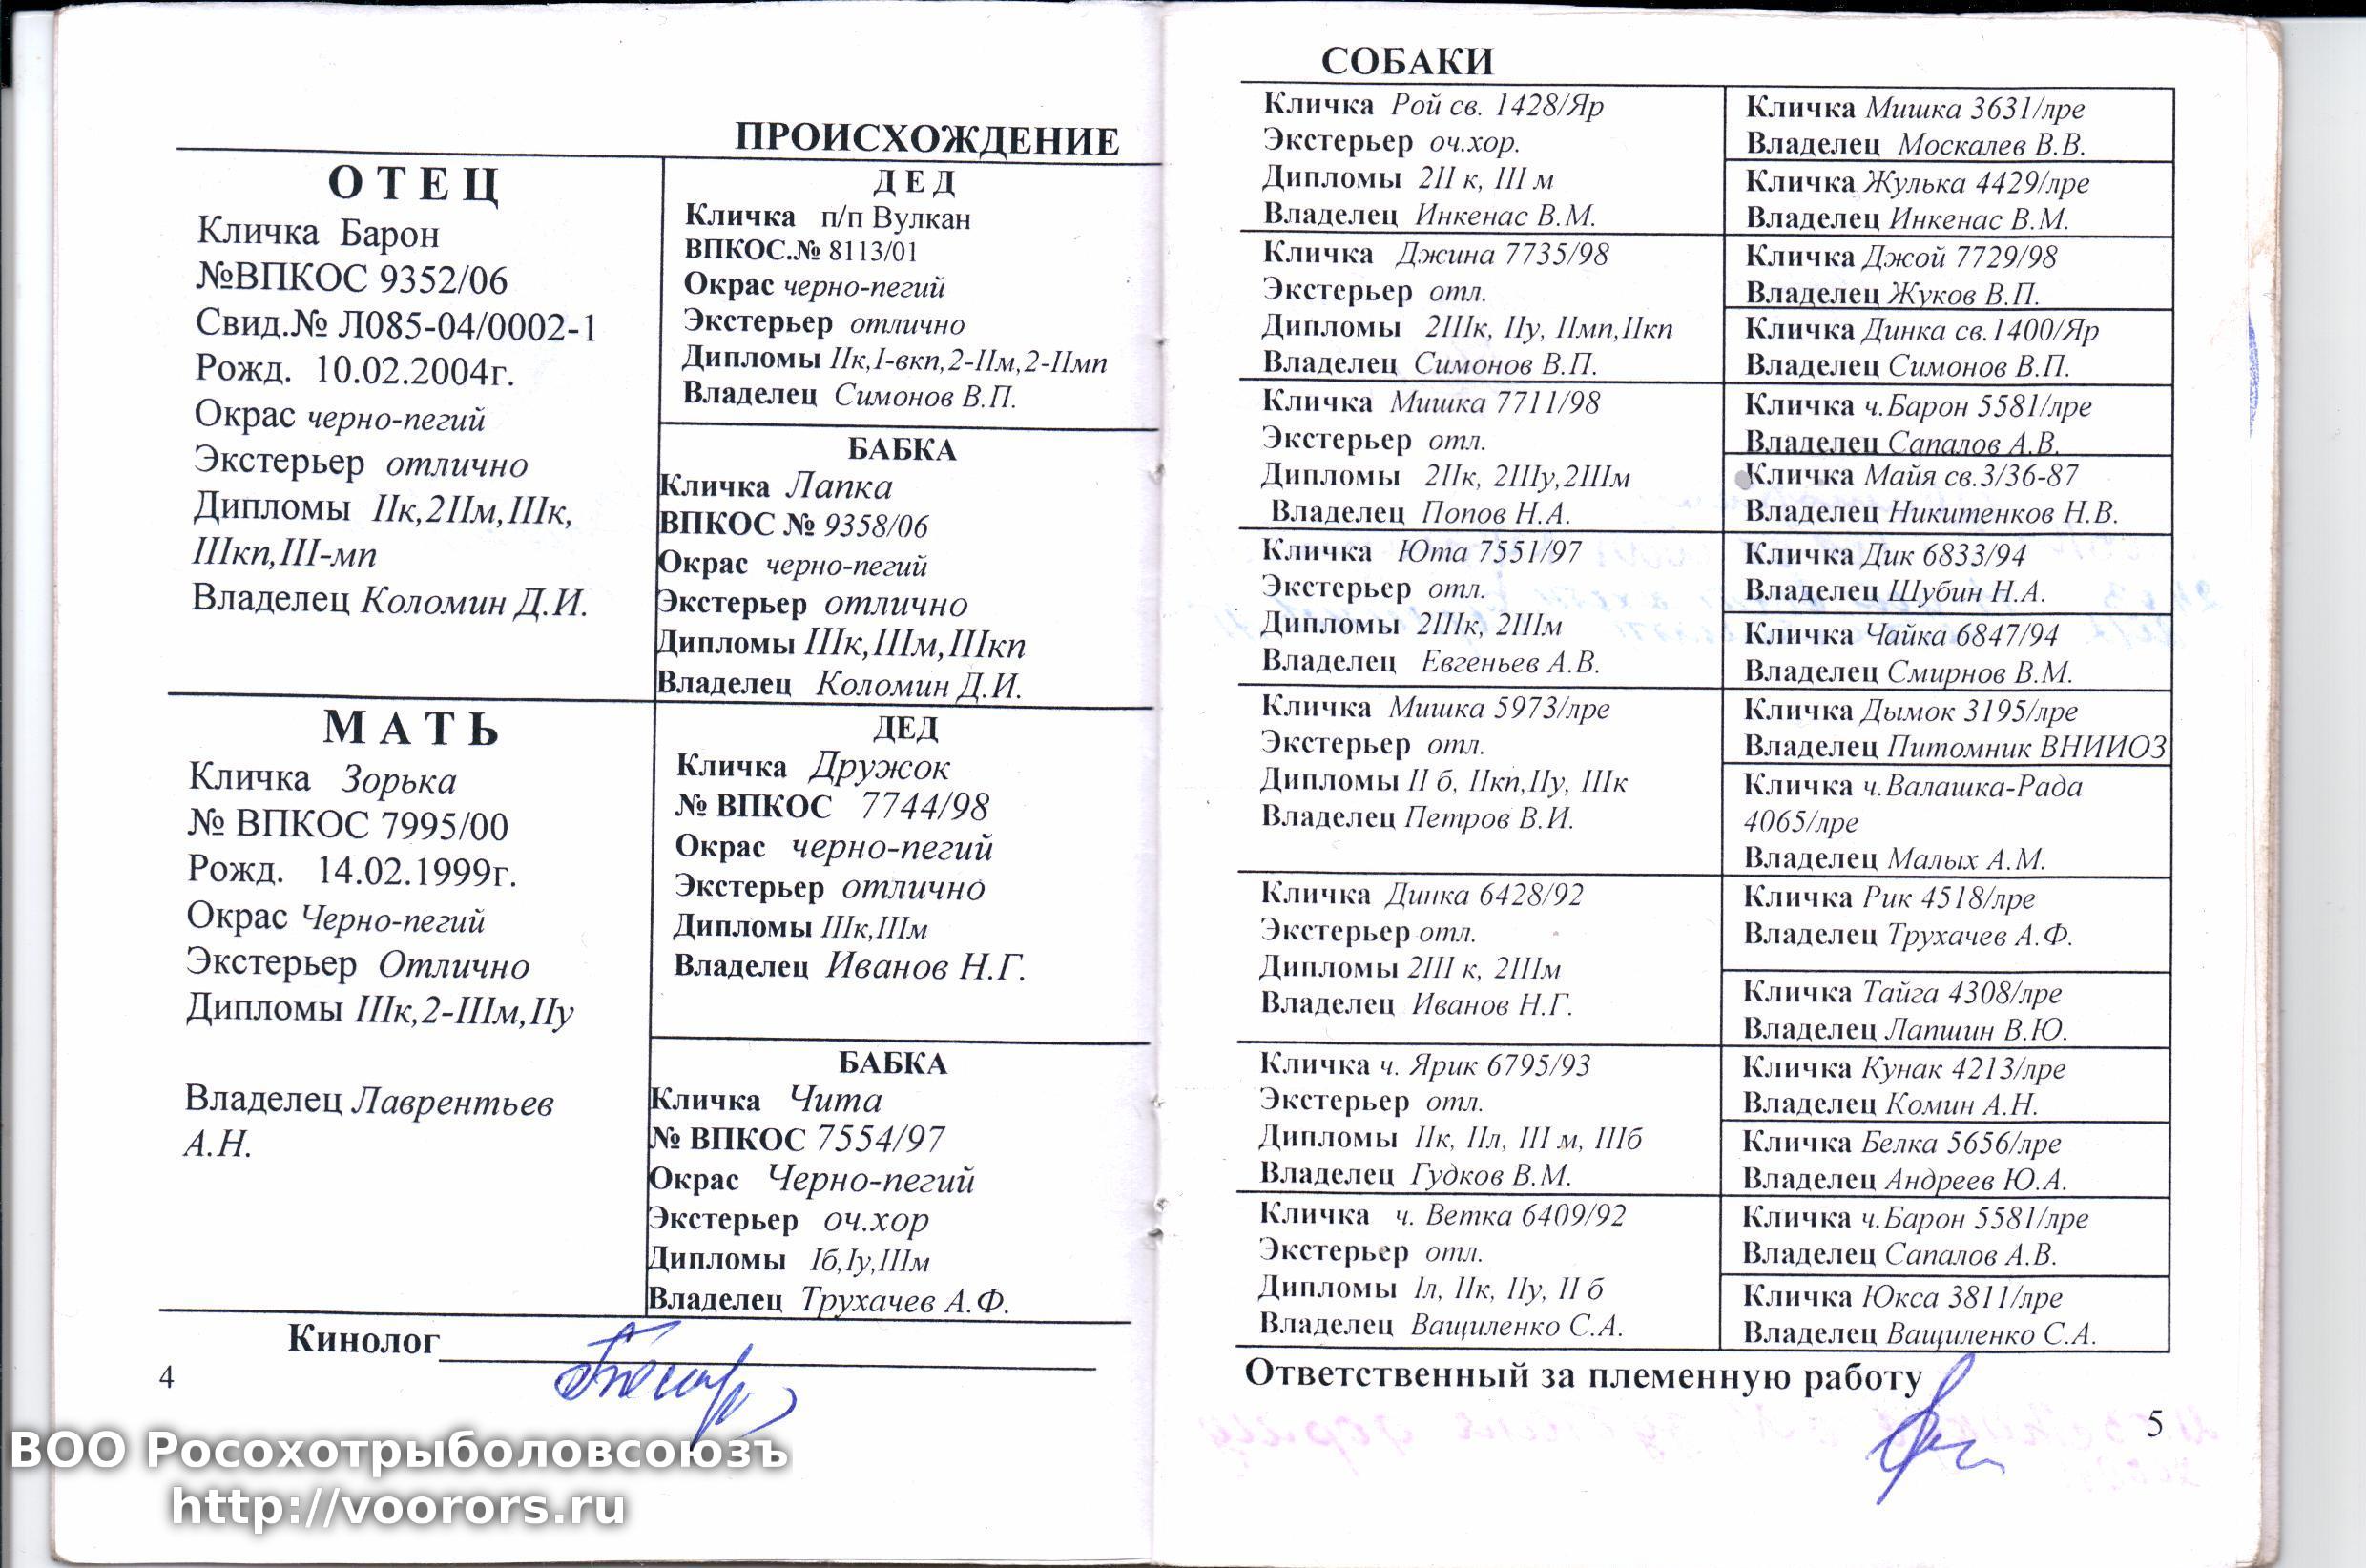 ПРОИСХОЖДЕНИЕ
ОТЕЦ
Кличка Барон
№ВПКОС 9352/06
Свид.№ Л085-04/0002-1
Рожд. 10.02.2004г.
Окрас черно-пегий
Экстерьер отлично
Дипломы IIк,2IIм,IIIк,
IIIкп,III-мп
Владелец Коломин Д.И.
ДЕД
Кличка п/п Вулкан
ВПКОС.№ 8113/01
Окрас черно-пегий
Экстерьер отлично
Дипломы IIк,I-вкп,2-IIм,2-IIмп
Владелец Симонов В.П.
БАБКА
Кличка Лапка
ВПКОС № 9358/06
Окрас черно-пегий
Экстерьер отлично
Дипломы IIIк,IIIм,IIIкп
Владелец Коломин Д.И.
МАТЬ
Кличка Зорька
№ ВПКОС 7995/00
Рожд. 14.02.1999г.
Окрас Черно-пегий
Экстерьер Отлично
Дипломы IIIк,2-IIIм,IIу
Владелец Лаврентьев
А.Н.
ДЕД
Кличка Дружок
№ ВПКОС 7744/98
Окрас черно-пегий
Экстерьер отлично
Дипломы IIIк,IIIм
Владелец Иванов Н.Г.
БАБКА
Кличка Чита
№ ВПКОС 7554/97
Окрас Черно-пегий
Экстерьер оч.хор
Дипломы Iб,Iу,IIIм
Владелец Трухачев А.Ф.
Кинолог
4
ВОО Росохотрыболовсоюзъ
http://voorors.ru
СОБАКИ
Кличка Рой св. 1428/Яр
Экстерьер оч.хор.
Дипломы 2II к, III м
Владелец Инкенас В.М.
Кличка Джина 7735/98
Экстерьер отл.
Дипломы 2IIIк, IIу, IIмп,IIкп
Владелец Симонов В.П.
Кличка Мишка 7711/98
Экстерьер отл.
Дипломы 2IIк, 2IIIу,2IIIм
Владелец Попов Н.А.
Кличка Юта 7551/97
Экстерьер отл.
Дипломы 2IIIк, 2IIIм
Владелец Евгеньев А.В.
Кличка Мишка 5973/лре
Экстерьер отл.
Дипломы II б, IIкп,IIу, IIIк
Владелец Петров В.И.
Кличка Динка 6428/92
Экстерьер отл.
Дипломы 2III к, 2IIIм
Владелец Иванов Н.Г.
Кличка ч. Ярик 6795/93
Экстерьер отл.
Дипломы IIк, IIл, III м, IIIб
Владелец Гудков В.М.
Кличка ч. Ветка 6409/92
Экстерьер отл.
Дипломы Iл, IIк, IIу, II б
Владелец Ващиленко С.А.
Кличка Мишка 3631/лре
Владелец Москалев В.В.
Кличка Жулька 4429/лре
Владелец Инкенас В.М.
Кличка Джой 7729/98
Владелец Жуков В.П.
Кличка Динка св.1400/Яр
Владелец Симонов В.П.
Кличка ч.Барон 5581/лре
Владелец Сапалов А.В.
Кличка Майя св.3/36-87
Владелец Никитенков Н.В.
Кличка Дик 6833/94
Владелец Шубин Н.А.
Кличка Чайка 6847/94
Владелец Смирнов В.М.
Кличка Дымок 3195/лре
Владелец Питомник ВНИИОЗ
Кличка ч.Валашка-Рада
4065/лре
Владелец Малых А.М.
Кличка Рик 4518/лре
Владелец Трухачев А.Ф.
Кличка Тайга 4308/лре
Владелец Лапшин В.Ю.
Кличка Кунак 4213/лре
Владелец Комин А.Н.
Кличка Белка 5656/лре
Владелец Андреев Ю.А.
Кличка ч.Барон 5581/лре
Владелец Сапалов А.В.
Кличка Юкса 3811/лре
Владелец Ващиленко С.А.
Ответственный за племенную работу
5